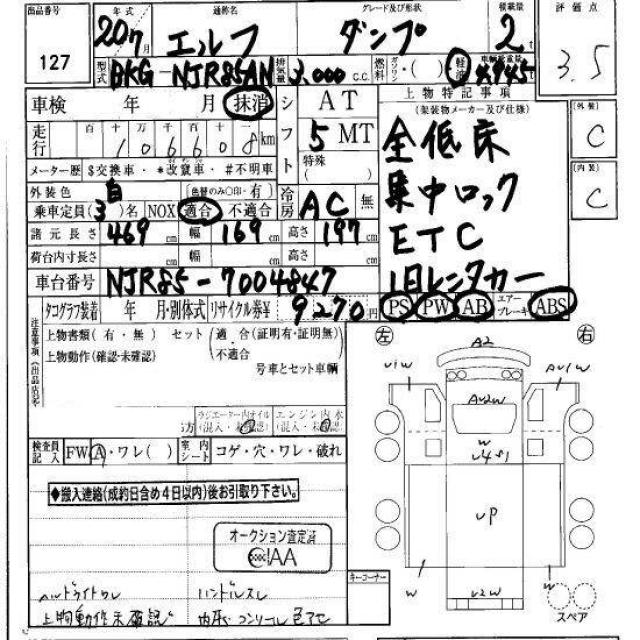 出品番号 年式 通称名 グレード及び形状 積載量 評価点
127 20 7月 エルフ ダンプ 2t 3.5
型式 BKG-NJR85AN 排気量 3,000 c.c. 燃料 ガソリン・( ) 軽油
車検 年 月 抹消 シフト AT 上物特記事項
(架装物メーカー及び仕様)
走行 百 十 万 千 百 十 一
106608km 5 MT 全低床
外装 C
メーター歴 $交換車・*改竄車・#不明車 特殊 ( ) 集中ロック
内装 C
外装色 白 (色替のみ○印・有) 冷房 AC 無
乗車定員(3)名 NOX 適合 不適合 ETC
諸元長さ 469cm 幅 169cm 高さ 197cm
荷台内寸長さ cm 幅 cm 高さ cm
車台番号 NJR85-7004847 1日レンタカー
タコグラフ装着 年 月・別体式 リサイクル券¥ 9270円 PS PW AB エアーブレーキ ABS
注意事項(出品店記入
上物書類(有・無) セット(適合(証明有・証明無)・不適合
上物動作(確認・未確認) 号車とセット車輌
左 右
A2
U1W AU1W
AU2W
W
U4S1
UP
W W
U2W
スペア
ラジエーター内オイル(混入・未確認) エンジン内水(混入・未確認)
検査員記入 FW A・ワレ( ) 室内シート コゲ・穴・ワレ・破れ
◆搬入連絡(成約日含め4日以内)後お引取り下さい。
オークション査定済
IAA
キーコーナー
ハンドルスレ
上物動作未確認